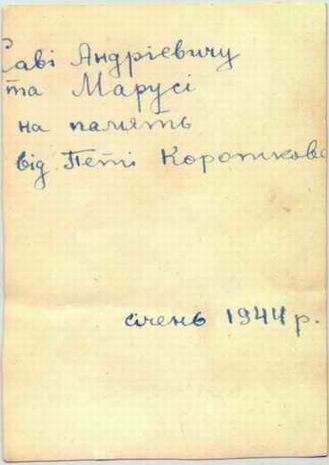 Саві Андрієвичу
та Марусі
на память
від Петі Короткова
січень 1944 р.